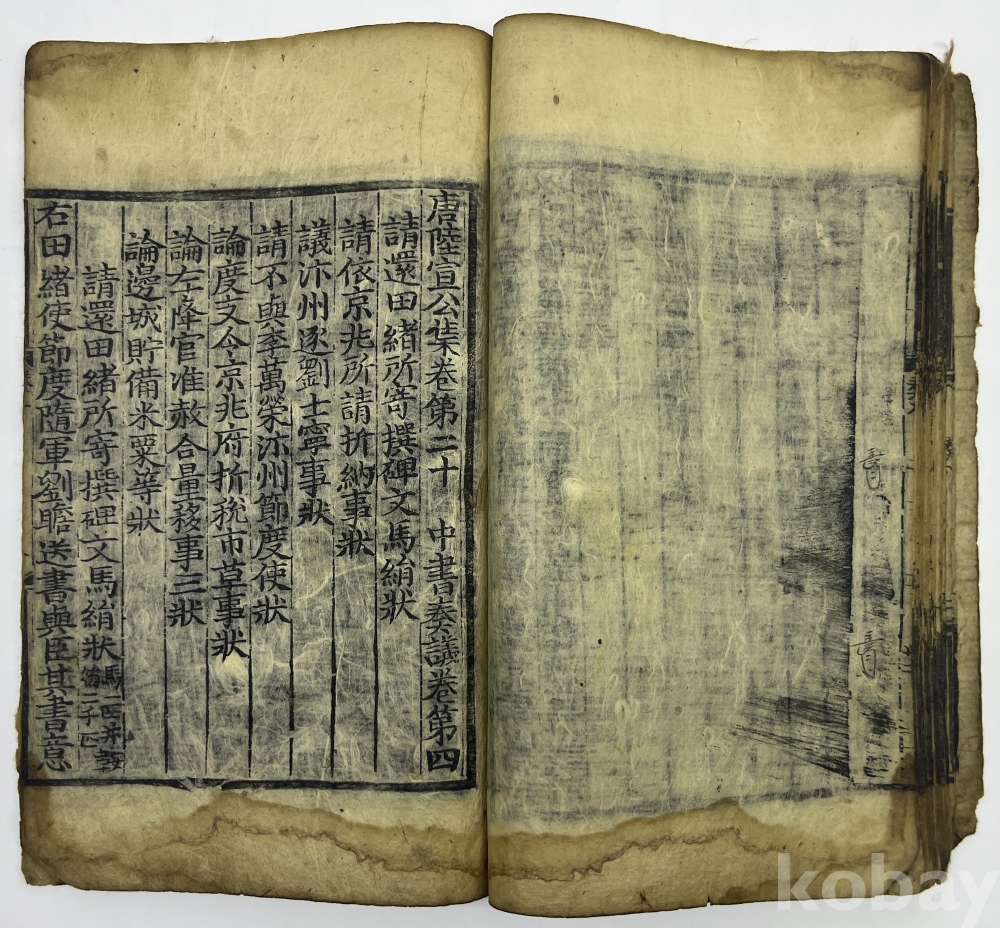 唐陸宣公集卷第二十 中書奏議卷第四
請還田緒所寄撰碑文馬絹狀
請依京兆所請折納事狀
議汴州逐劉士寧事狀
請不與李萬榮汴州節度使狀
論度支令京兆府折稅市草事狀
論左降官准赦合量移事三狀
論邊城貯備米粟等狀
請還田緒所寄撰碑文馬絹狀
右田緒使節度隨軍劉瞻送書與臣其書意
kobay